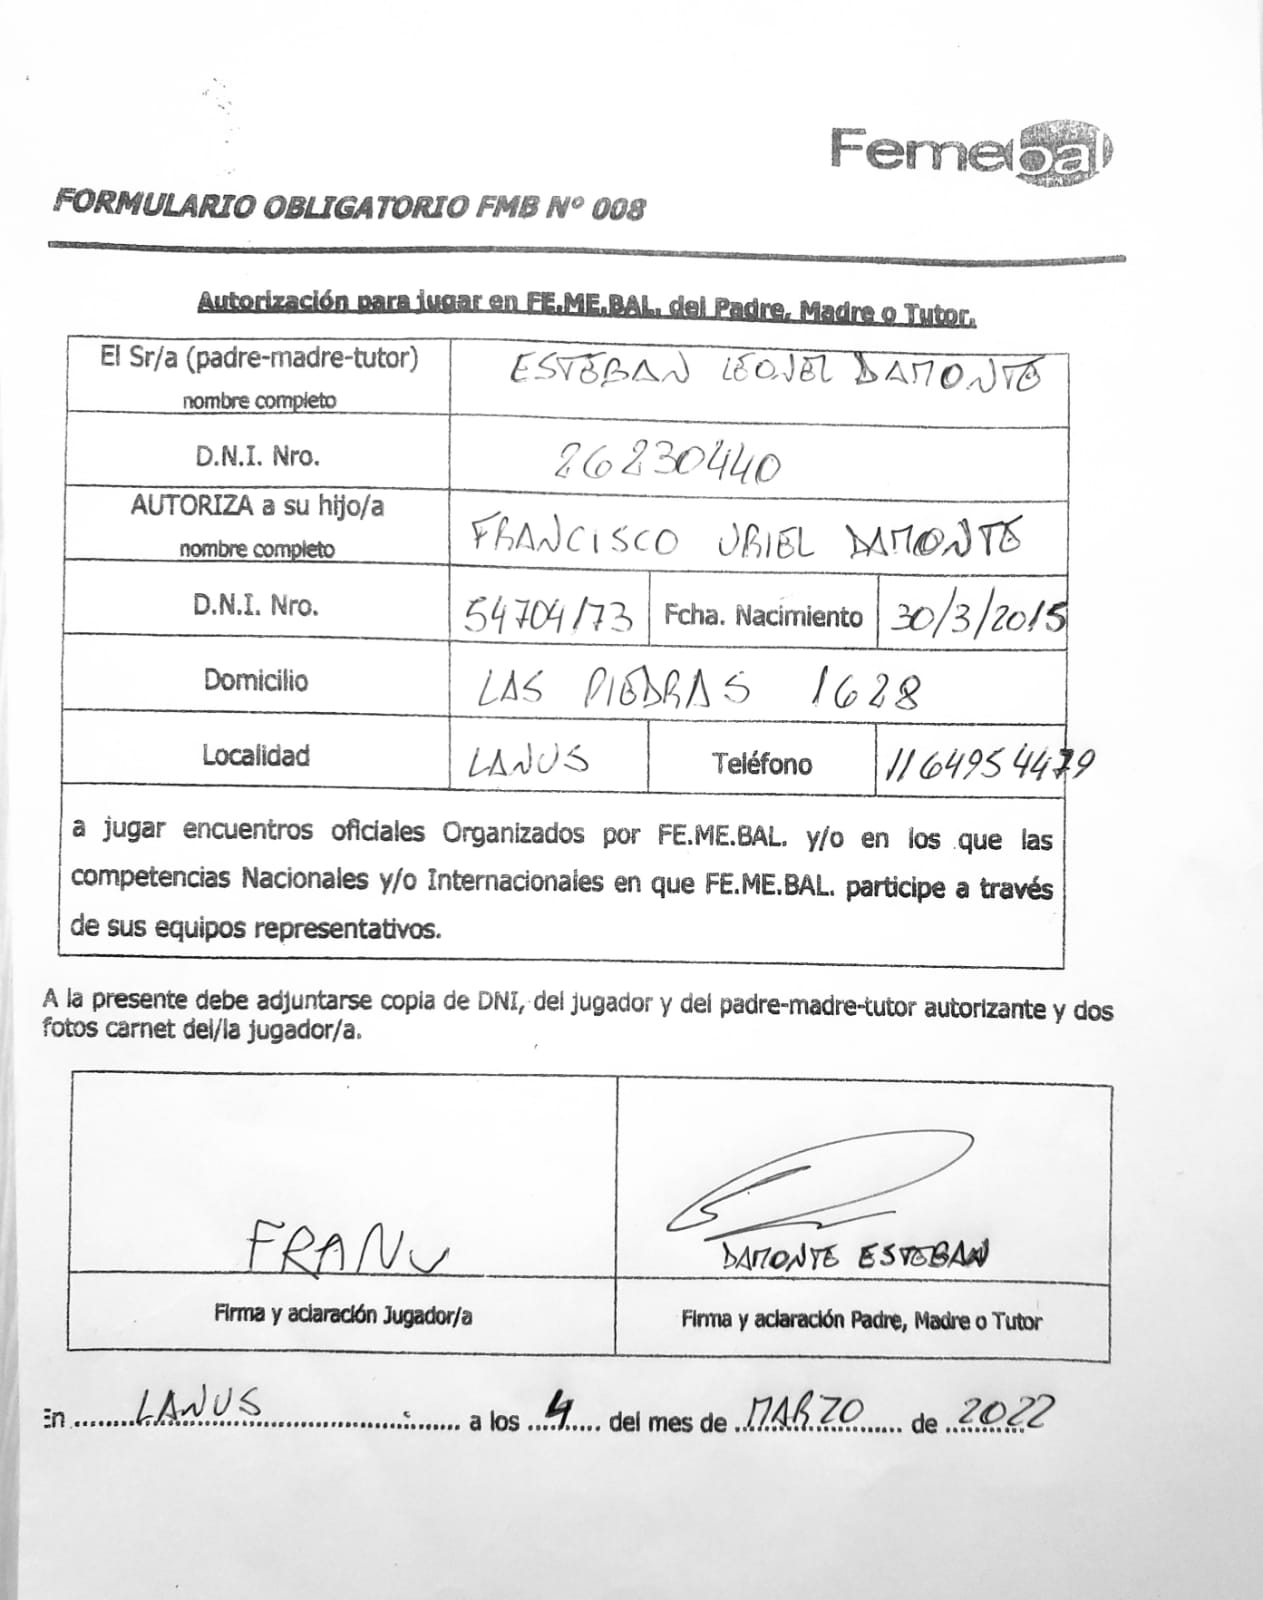 Femebal
FORMULARIO OBLIGATORIO FMB Nº 008
Autorización para jugar en FE.ME.BAL. del Padre, Madre o Tutor.
El Sr/a (padre-madre-tutor) ESTEBAN LEONEL DAMONTE
nombre completo
D.N.I. Nro. 26230440
AUTORIZA a su hijo/a FRANCISCO URIEL DAMONTE
nombre completo
D.N.I. Nro. 54704173 Fcha. Nacimiento 30/3/2015
Domicilio LAS PIEDRAS 1628
Localidad LANUS Teléfono 1164954479
a jugar encuentros oficiales Organizados por FE.ME.BAL. y/o en los que las
competencias Nacionales y/o Internacionales en que FE.ME.BAL. participe a través
de sus equipos representativos.
A la presente debe adjuntarse copia de DNI, del jugador y del padre-madre-tutor autorizante y dos
fotos carnet del/la jugador/a.
FRANU
DAMONTE ESTEBAN
Firma y aclaración Jugador/a Firma y aclaración Padre, Madre o Tutor
En LANUS a los 4 del mes de MARZO de 2022